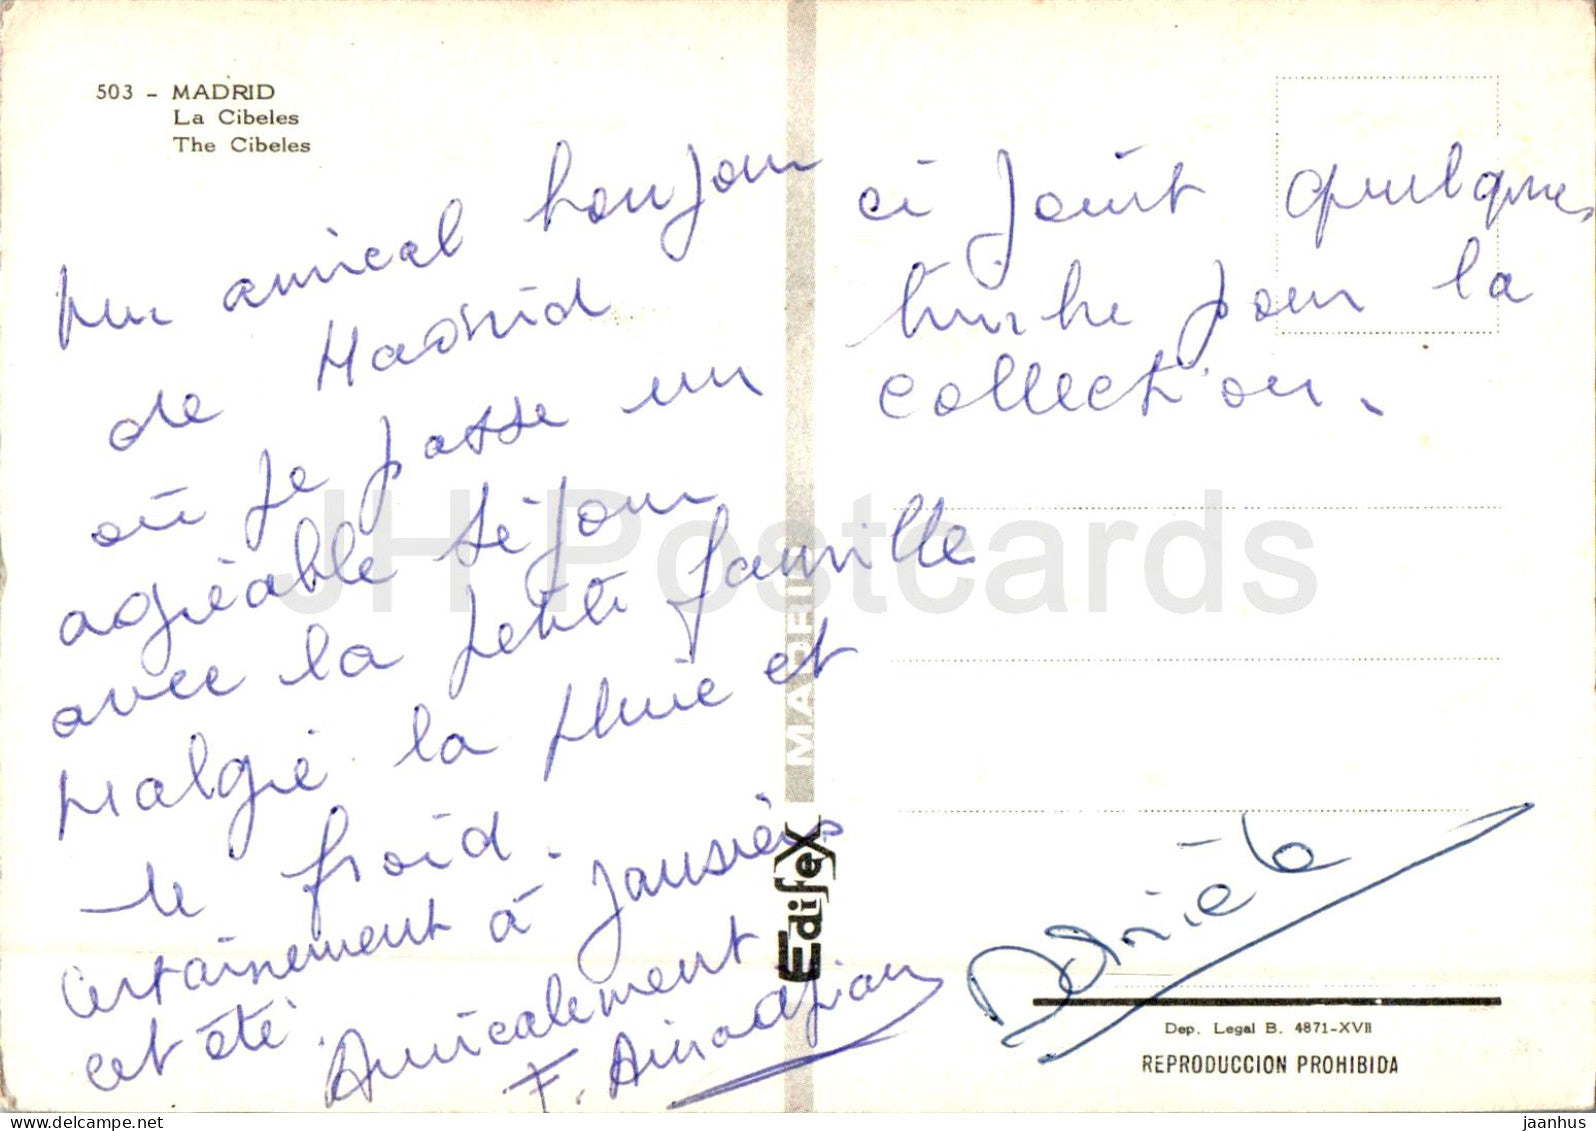 503 - MADRID
La Cibeles
The Cibeles
un amical bonjour
de Madrid
où je passe un
agréable séjour
avec la petite famille
malgré la pluie et
le froid.
Certainement à Jausiers
cet été.
Amicalement
F.
ci joint quelques
timbre pour la
collection.
JH Postcards
MADRID
Edifex
Dep. Legal B. 4871-XVII
REPRODUCCION PROHIBIDA
www.delcampe.net
jaanhus